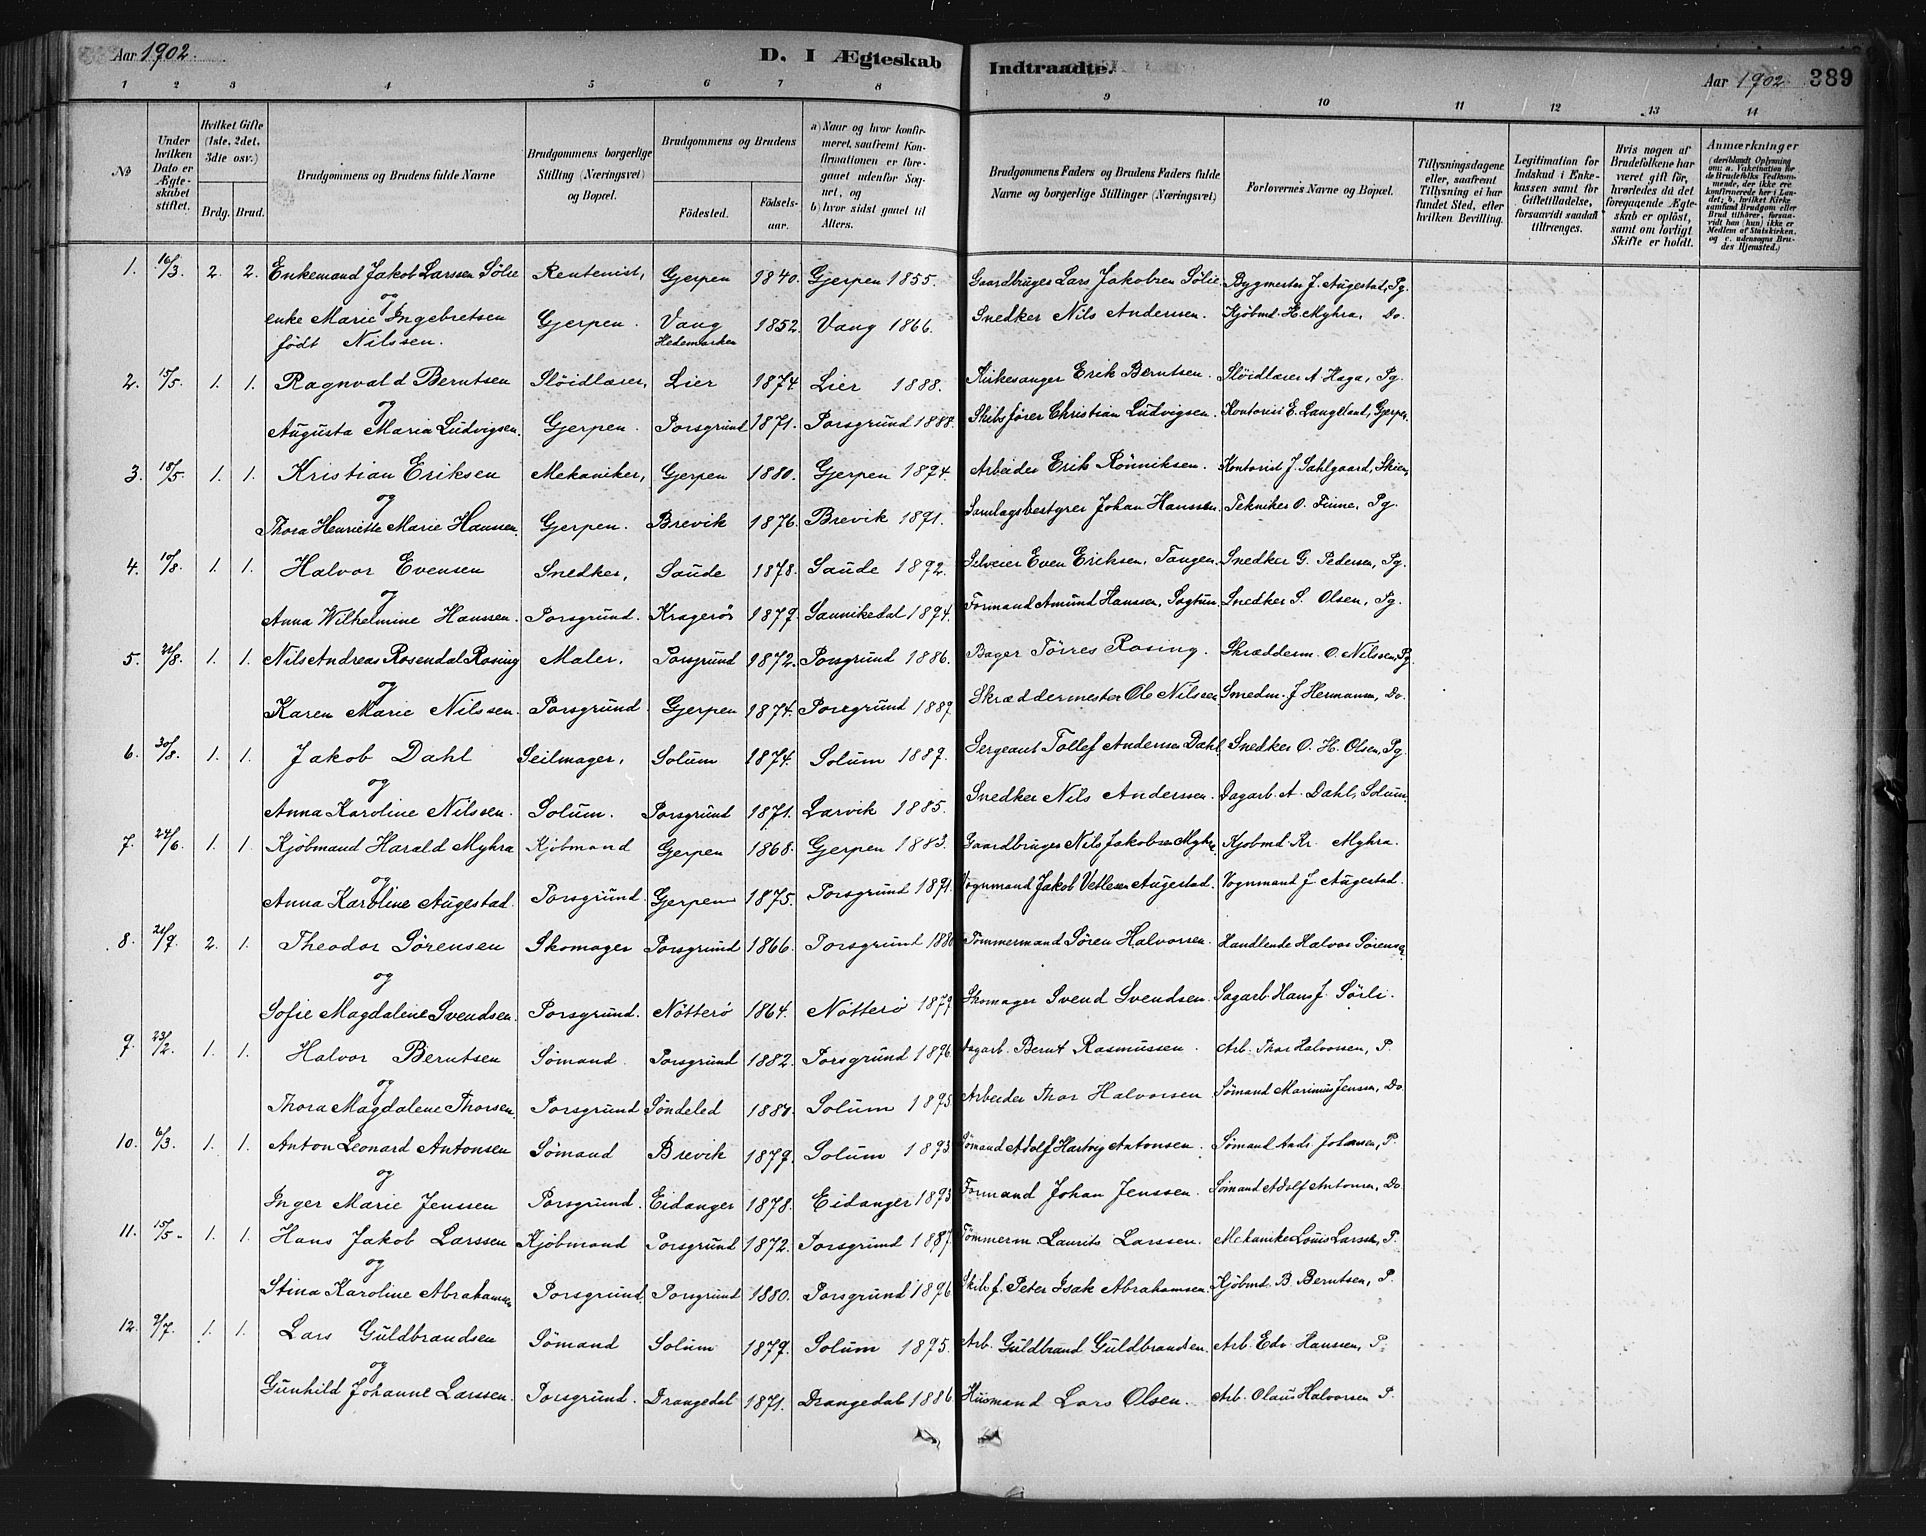 Aar 1902.
D. I Ægteskab Indtraadte.
Aar 1902 389
1 2 3 4 5 6 7 8 9 10 11 12 13 14
No
Under hvilken Dato er Ægteskabet stiftet.
Hvilket Gifte (1ste, 2det, 3die osv.)
Brdg. Brud.
Brudgommens og Brudens fulde Navne
Brudgommens borgerlige Stilling (Næringsvei) og Bopæl.
Brudgommens og Brudens
Fødested.
Fødselsaar.
a) Naar og hvor konfirmeret, saafremt Konfirmationen er foregaaet udenfor Sognet, og b) hvor sidst gaaet til Alters.
Brudgommens Faders og Brudens Faders fulde Navne og borgerlige Stillinger (Næringsvei)
Forlovernes Navne og Bopæl.
Tillysningsdagene eller, saafremt Tillysning ei har fundet Sted, efter hvilken Bevilling.
Legitimation for Indskud i Enkekassen samt for Giftetilladelse, forsaavidt saadan tiltrænges.
Hvis nogen af Brudefolkene har været gift før, hvorledes da det foregaaende Ægteskab er opløst, samt om lovligt Skifte er holdt.
Anmærkninger (deriblandt Oplysning om: a. Vakcination for de Brudefolks Vedkommende, der ikke ere konfirmerede her i Landet; b. hvilket Kirkesamfund Brudgom eller Brud tilhører, forsaavidt han (hun) ikke er Medlem af Statskirken, og c. udensogns Brudes Hjemsted.)
1. 16/3. 2. 2. Enkemand Jakob Larssen Sølie Rentenist, Gjerpen 1840. Gjerpen 1855. Gaardbruger Lars Jakobsen Sølie. Bygmester J. Augestad, Pg.
og
enke Marie Ingebretsen født Nilssen. Gjerpen. Vang Hedemarken 1852. Vang 1866. Snedker Nils Anderssen. Kjøbmd. H. Myhra, Do.
2. 15/5. 1. 1. Ragnvald Berntsen Sløidlærer, Lier 1874 Lier 1888. Kirkesanger Erik Berntsen. Sløidlærer A Haga, Pg.
og
Augusta Maria Ludvigsen. Gjerpen. Porsgrund 1871. Porsgrund 1888. Skibsfører Christian Ludvigsen. Kontorist E. Langeland, Gjerpen
3. 18/5. 1. 1. Kristian Eriksen Mekaniker, Gjerpen 1880. Gjerpen 1894. Arbeider Erik Rønniksen. Kontorist J. Dahlgaard, Skien,
og
Thora Henriette Marie Hanssen. Gjerpen. Brevik 1876. Brevik 1891. Samlagsbestyrer Johan Hanssen. Tekniker O. Finne, Pg.
4. 10/8. 1. 1. Halvor Evensen Snedker, Saude 1878. Saude 1892. Selveier Even Eriksen, Tangen. Snedker G. Pedersen, Pg.
og
Anna Wilhelmine Hanssen. Porsgrund. Kragerø 1879. Sannikedal 1894. Formand Amund Hanssen, Sagtun. Snedker S. Olsen, Pg.
5. 1. 1. Nils Andreas Rosendal Rosing Maler, Porsgrund 1872. Porsgrund 1886. Bager Törres Rosing. Skrædderm. O. Nilssen, Pg
og
Karen Marie Nilssen. Porsgrund Gjerpen 1874. Porsgrund 1889 Skræddermester Ole Nilssen Smedm. J Hermansen, Do.
6. 30/8. 1. 1. Jakob Dahl Seilmager, Solum 1874. Solum 1889. Sergeant Tollef Andersen Dahl. Snedker O. H. Olsen, Pg.
og
Anna Karoline Nilssen. Solum. Porsgrund 1871. Larvik 1885. Snedker Nils Anderssen. Dagarb. A. Dahl, Solum.
7. 24/6. 1. 1. Kjöbmand Harald Myhra Kjöbmand Gjerpen 1868. Gjerpen 1883. Gaardbruger Nils Jakobsen Myhra. Kjøbmd. Kr. Myhra.
og
Anna Karoline Augestad. Porsgrund Gjerpen 1875. Porsgrund 1891. Vognmand Jakob Vetlesen Augestad. Vognmand J. Augestad.
8. 21/9. 2. 1. Theodor Sörensen Skomager Porsgrund 1866. Porsgrund 1880 Tömmermand Sören Halvorsen. Handlende Halvor Sörensen
og
Sofie Magdalene Svendsen. Porsgrund. Nötterö 1864. Nötterö 1879 Skomager Svend Svendsen. Sagarb. Hans J. Sörli.
9. 23/2. 1. 1. Halvor Berntsen Sömand. Porsgrund 1882. Porsgrund 1896. Dagarb. Bernt Rasmussen. Arb. Thor Halvorsen, P.
og
Thora Magdalene Thorsen. Porsgrund Söndeled Solum 1895 Arbeider Thor Halvorsen Sömand Marinius Jenssen, Do
10. 6/3. 1. 1. Anton Leonard Antonsen Sömand Brevik 1879. Solum 1893 Sömand Adolf Hartvig Antonsen. Sömand Andr. Johansen, P.
og
Inger Marie Jenssen Porsgrund. Eidanger 1878. Eidanger 1893 Formand Johan Jenssen. Sömand Adolf Antonsen, Do
11. 15/5. 1. 1. Hans Jakob Larssen Kjöbmand Porsgrund 1872. Porsgrund 1887. Tömmerm Laurits Larssen. Mekaniker Louis Larssen, P.
og
Stina Karoline Abrahamsen Porsgrund. Porsgrund 1880. Porsgrund 1896 Skibsf. Peter Isak Abrahamsen. Kjöbmd. B. Berntsen, P.
12. 9/7. 1. 1. Lars Guldbrandsen Sömand Solum 1879. Solum 1895. Arb. Guldbrand Guldbrandsen. Arb. Edv. Hanssen, P.
og
Gunhild Johanne Larssen. Porsgrund. Drangedal 1871. Drangedal 1886 Husmand Lars Olsen. Arb. Olaus Halvorsen P.